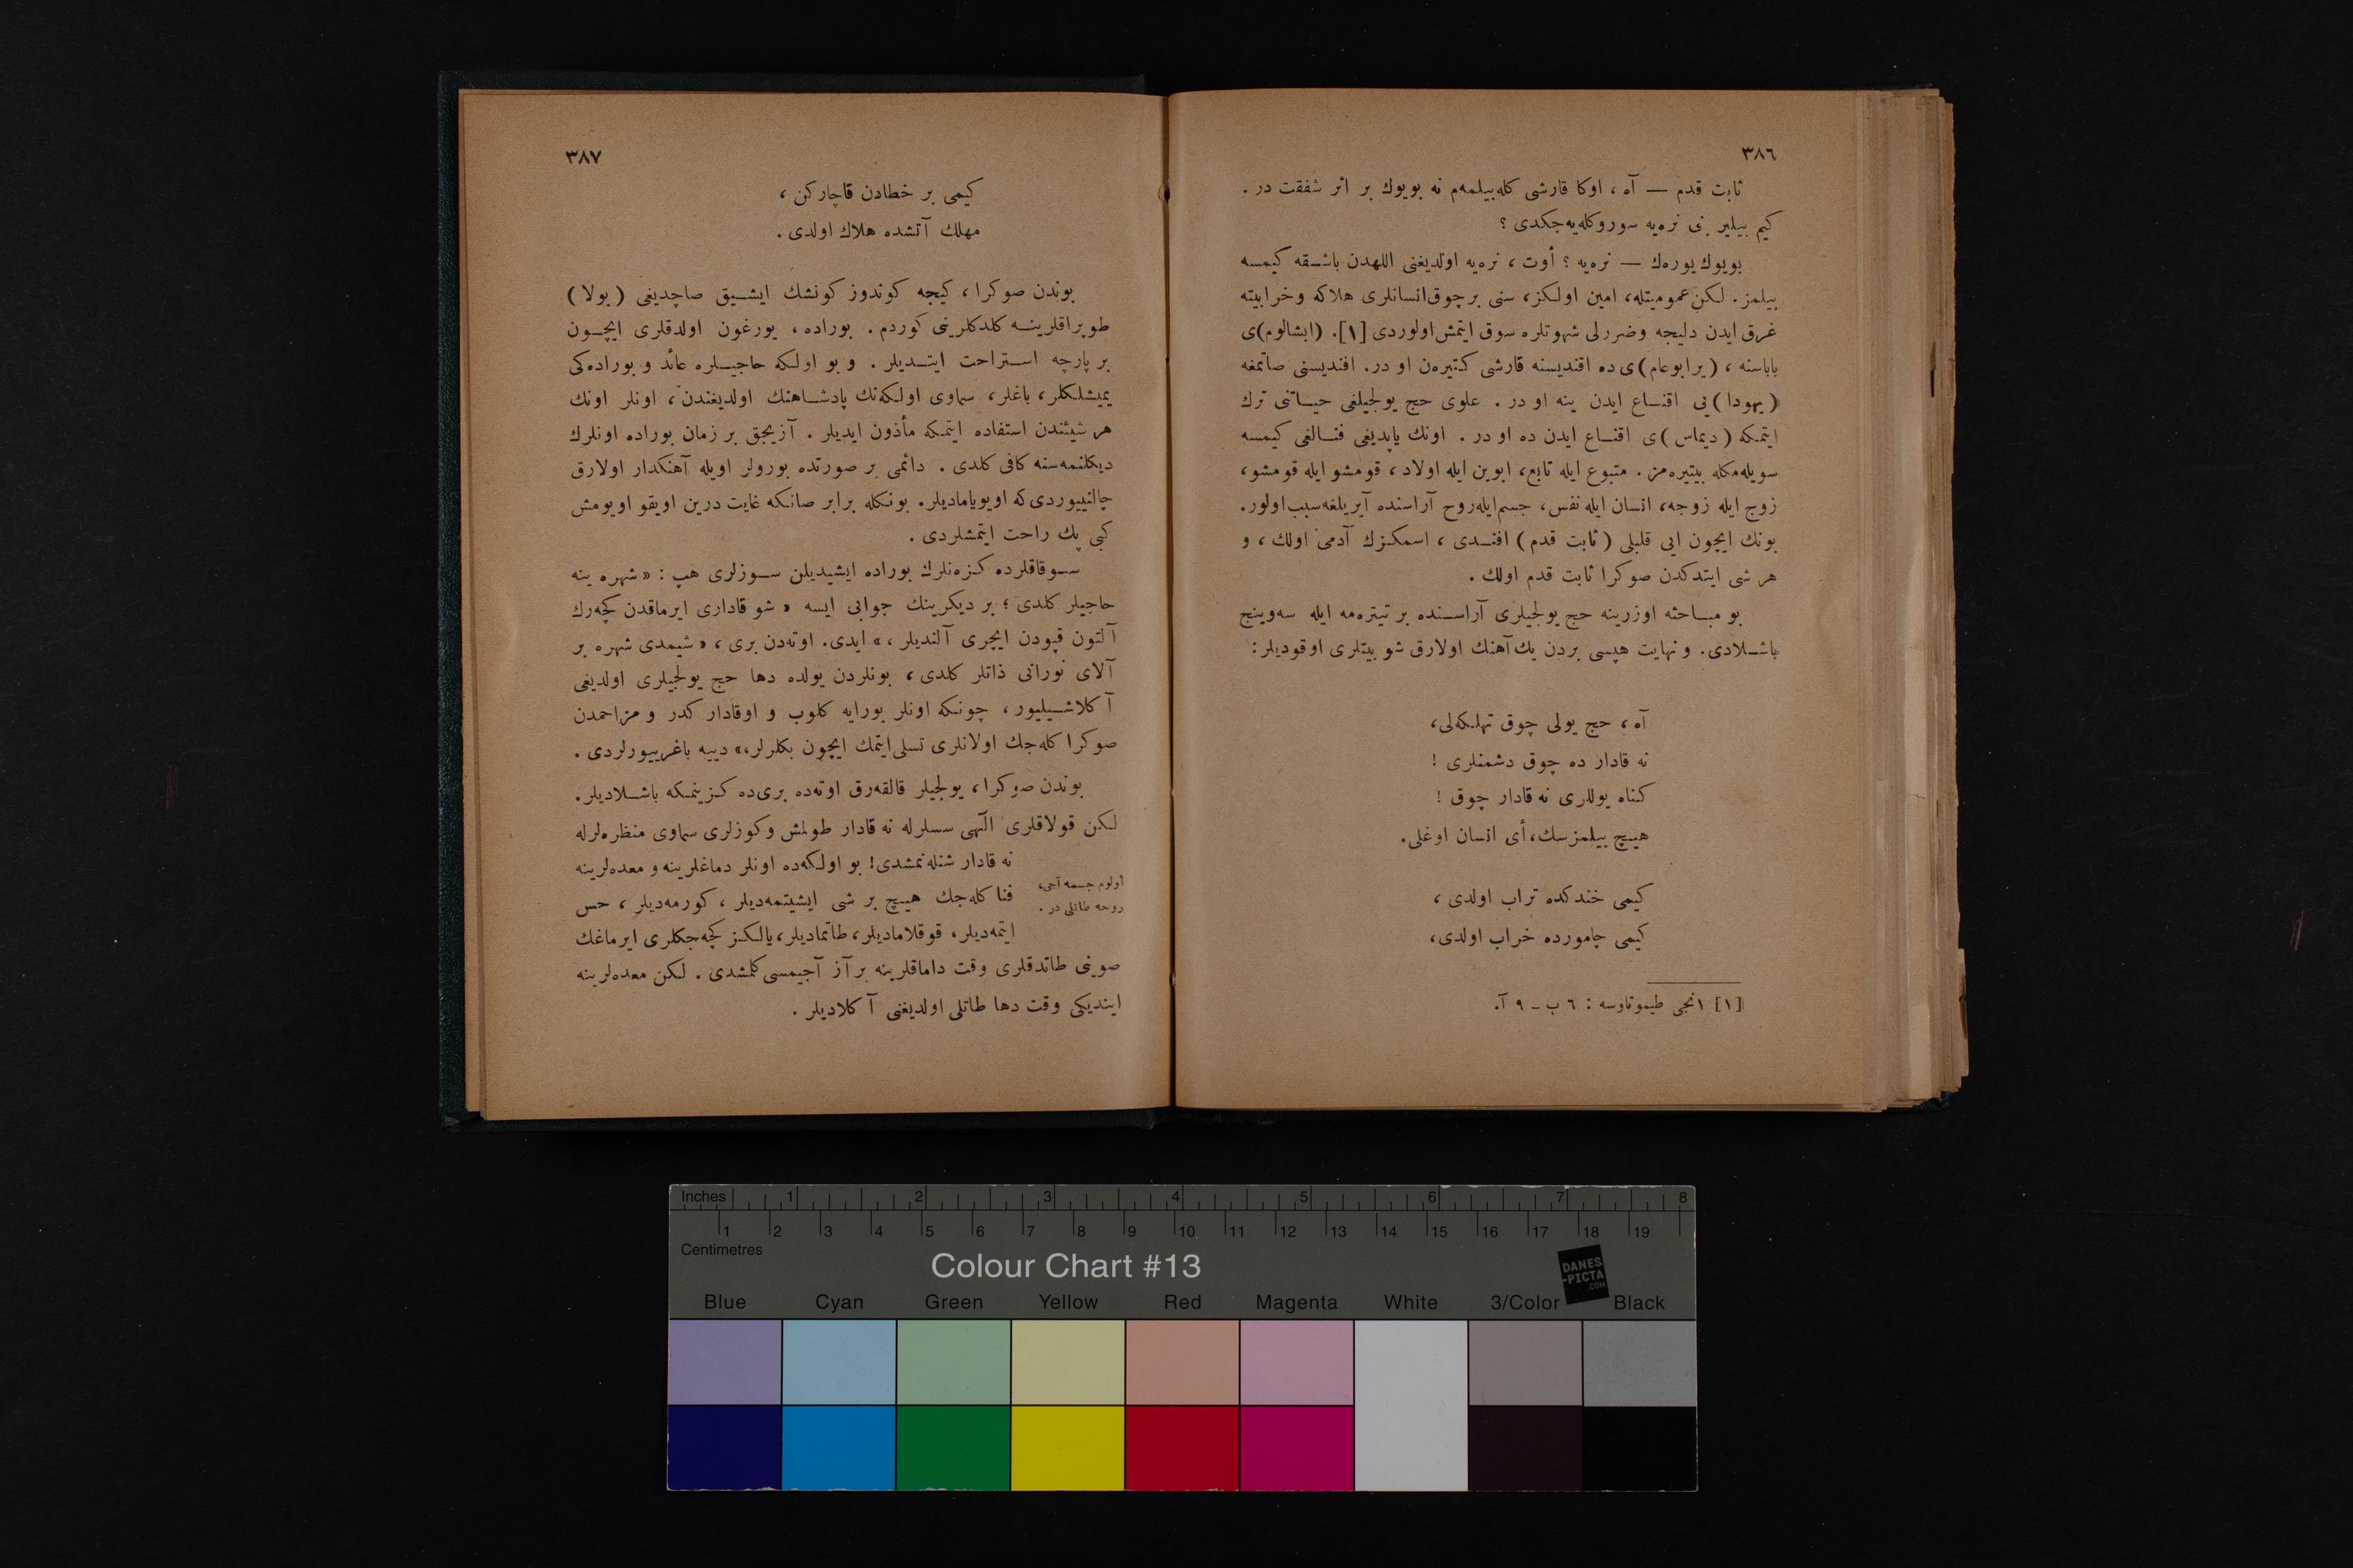 ٣٨٦
ثابت قدم — آه ، اوكا قارشى كله‌بيلمه‌م نه بويوك بر اثر شفقت در .
كيم بيلير بنى نره‌يه سوروكله‌يه‌جكدى ؟
بويوك يوره‌ك — نره‌يه ؟ أوت ، نره‌يه اولديغنى اللهدن باشــقه كيمسه
بيلمز . لـكن عموميتله، امين اولـكز، سنى بر چوق انسانلرى هلاكه و خرابيته
غرق ايدن دليجه و ضررلى شهوتلره سوق ايتمش اولوردى [١]. (ابشالوم)ى
باباسنه ، (يرابوعام)ى ده افنديسنه قارشى كـتيره‌ن او در. افنديسنى صاتمغه
(يهودا)يى اقنــاع ايدن ينه او در . علوى حج يولجيلغى حيــاتنى ترك
ايتمـكه (ديماس)ى اقنــاع ايدن ده او در . اونك ياپديغى فنــالغى كيمسه
سويله‌مكله بيتيره‌مز . متبوع ايله تابع، ابوين ايله اولاد ، قومشو ايله قومشو،
زوج ايله زوجه، انسان ايله نفس، جسم ايله روح آراسنده آيريلغه سبب اولور.
بونك ايچون ايى قلبلى (ثابت قدم) افنــدى ، اسمكـزك آدمى اولك ، و
هر شى ايتدكدن صوكرا ثابت قدم اولك .
بو مبــاحثه اوزرينه حج يولجيلرى آراســنده بر تيتره‌مه ايله سه‌وينج
باشــلادى. و نهايت هپسى بردن يك آهنك اولارق شو بيتلرى اوقوديلر:
آه ، حج يولى چوق تهلـكه‌لى،
نه قادار ده چوق دشمنلرى !
كـناه يوللرى نه قادار چوق !
هيـچ بيلمزسك، أى انسان اوغلى.
كيمى خندكده تراب اولدى ،
كيمى چامورده خراب اولدى،
[١] ١نجى طيموتاوسه : ٦ ب ـ ٩ آ.
٣٨٧
كيمى بر خطادن قاچاركن ،
مهلك آتشده هلاك اولدى .
بوندن صوكرا ، كيجه كوندوز كونشك ايشــيق صاچديغى (بولا)
طوپراقلرينــه كلدكلرينى كوردم . بوراده ، يورغون اولدقلرى ايچــون
بر پارچه اســتراحت ايتــديلر . و بو اولـكه حاجيــلره عائد و بوراده‌كى
يميشلـكلر، باغلر، سماوى اولـكه‌نك پادشــاهنك اولديغندن ، اونلر اونك
هر شيئندن استفاده ايتمـكه مأذون ايديلر . آزيجق بر زمان بوراده اونلرك
ديكلنمه‌سنه كافى كلدى . دائمى بر صورتده بورولر اويله آهنكدار اولارق
چالنييوردى كه اويوياماديلر. بونـكله برابر صانـكه غايت درين اويقو اويومش
كبى پك راحت ايتمشلردى .
ســوقاقلرده كـزه‌نلرك بوراده ايشيديلن ســوزلرى هپ : « شهره ينه
حاجيلر كلدى ؛ بر ديكرينك جوابى ايسه « شو قادارى ايرماقدن كچه‌رك
آلتون قپودن ايچرى آلنديلر ، » ايدى. اوته‌دن برى ، « شيمدى شهره بر
آلاى نورانى ذاتلر كلدى ، بونلردن يولده دها حج يولجيلرى اولديغى
آكلاشــيليور ، چونـكه اونلر بورايه كلوب و اوقادار كدر و مزاحمدن
صوكرا كله‌جك اولانلرى تسلى ايتمك ايچون بكلرلر،» دييه باغرييورلردى .
بوندن صوكرا ، يولجيلر قالقه‌رق اوته‌ده برى‌ده كـزينمـكه باشــلاديلر.
لـكن قولاقلرى الٓهى سسلرله نه قادار طولمش و كوزلرى سماوى منظره‌لرله
نه قادار شنله‌نمشدى! بو اولـكه‌ده اونلر دماغلرينه و معده‌لرينه
فنا كله‌جك هيـچ بر شى ايشيتمه‌ديلر ، كورمه‌ديلر ، حس
ايتمه‌ديلر، قوقلاماديلر، طاتماديلر، يالـكـز كچه‌جكلرى ايرماغك
صوينى طاتدقلرى وقت داماقلرينه بر آز آجيمسى كلمشدى . لـكن معده‌لرينه
اينديكى وقت دها طاتلى اولديغنى آكلاديلر .
اولوم جسمه آجى،
روحه طاتلى در .
Inches 1 2 3 4 5 6 7 8
1 2 3 4 5 6 7 8 9 10 11 12 13 14 15 16 17 18 19
Centimetres
Colour Chart #13
DANES
-PICTA
.COM
Blue Cyan Green Yellow Red Magenta White 3/Color Black